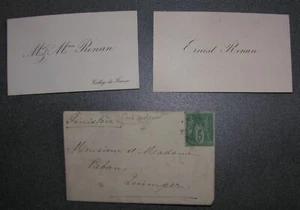 Mr & Mme Renan
Collège de France
Ernest Renan
Finistère
Monsieur et Madame
Quimper